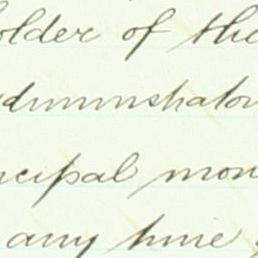 older of the
dministrator
ncipal mon
any time